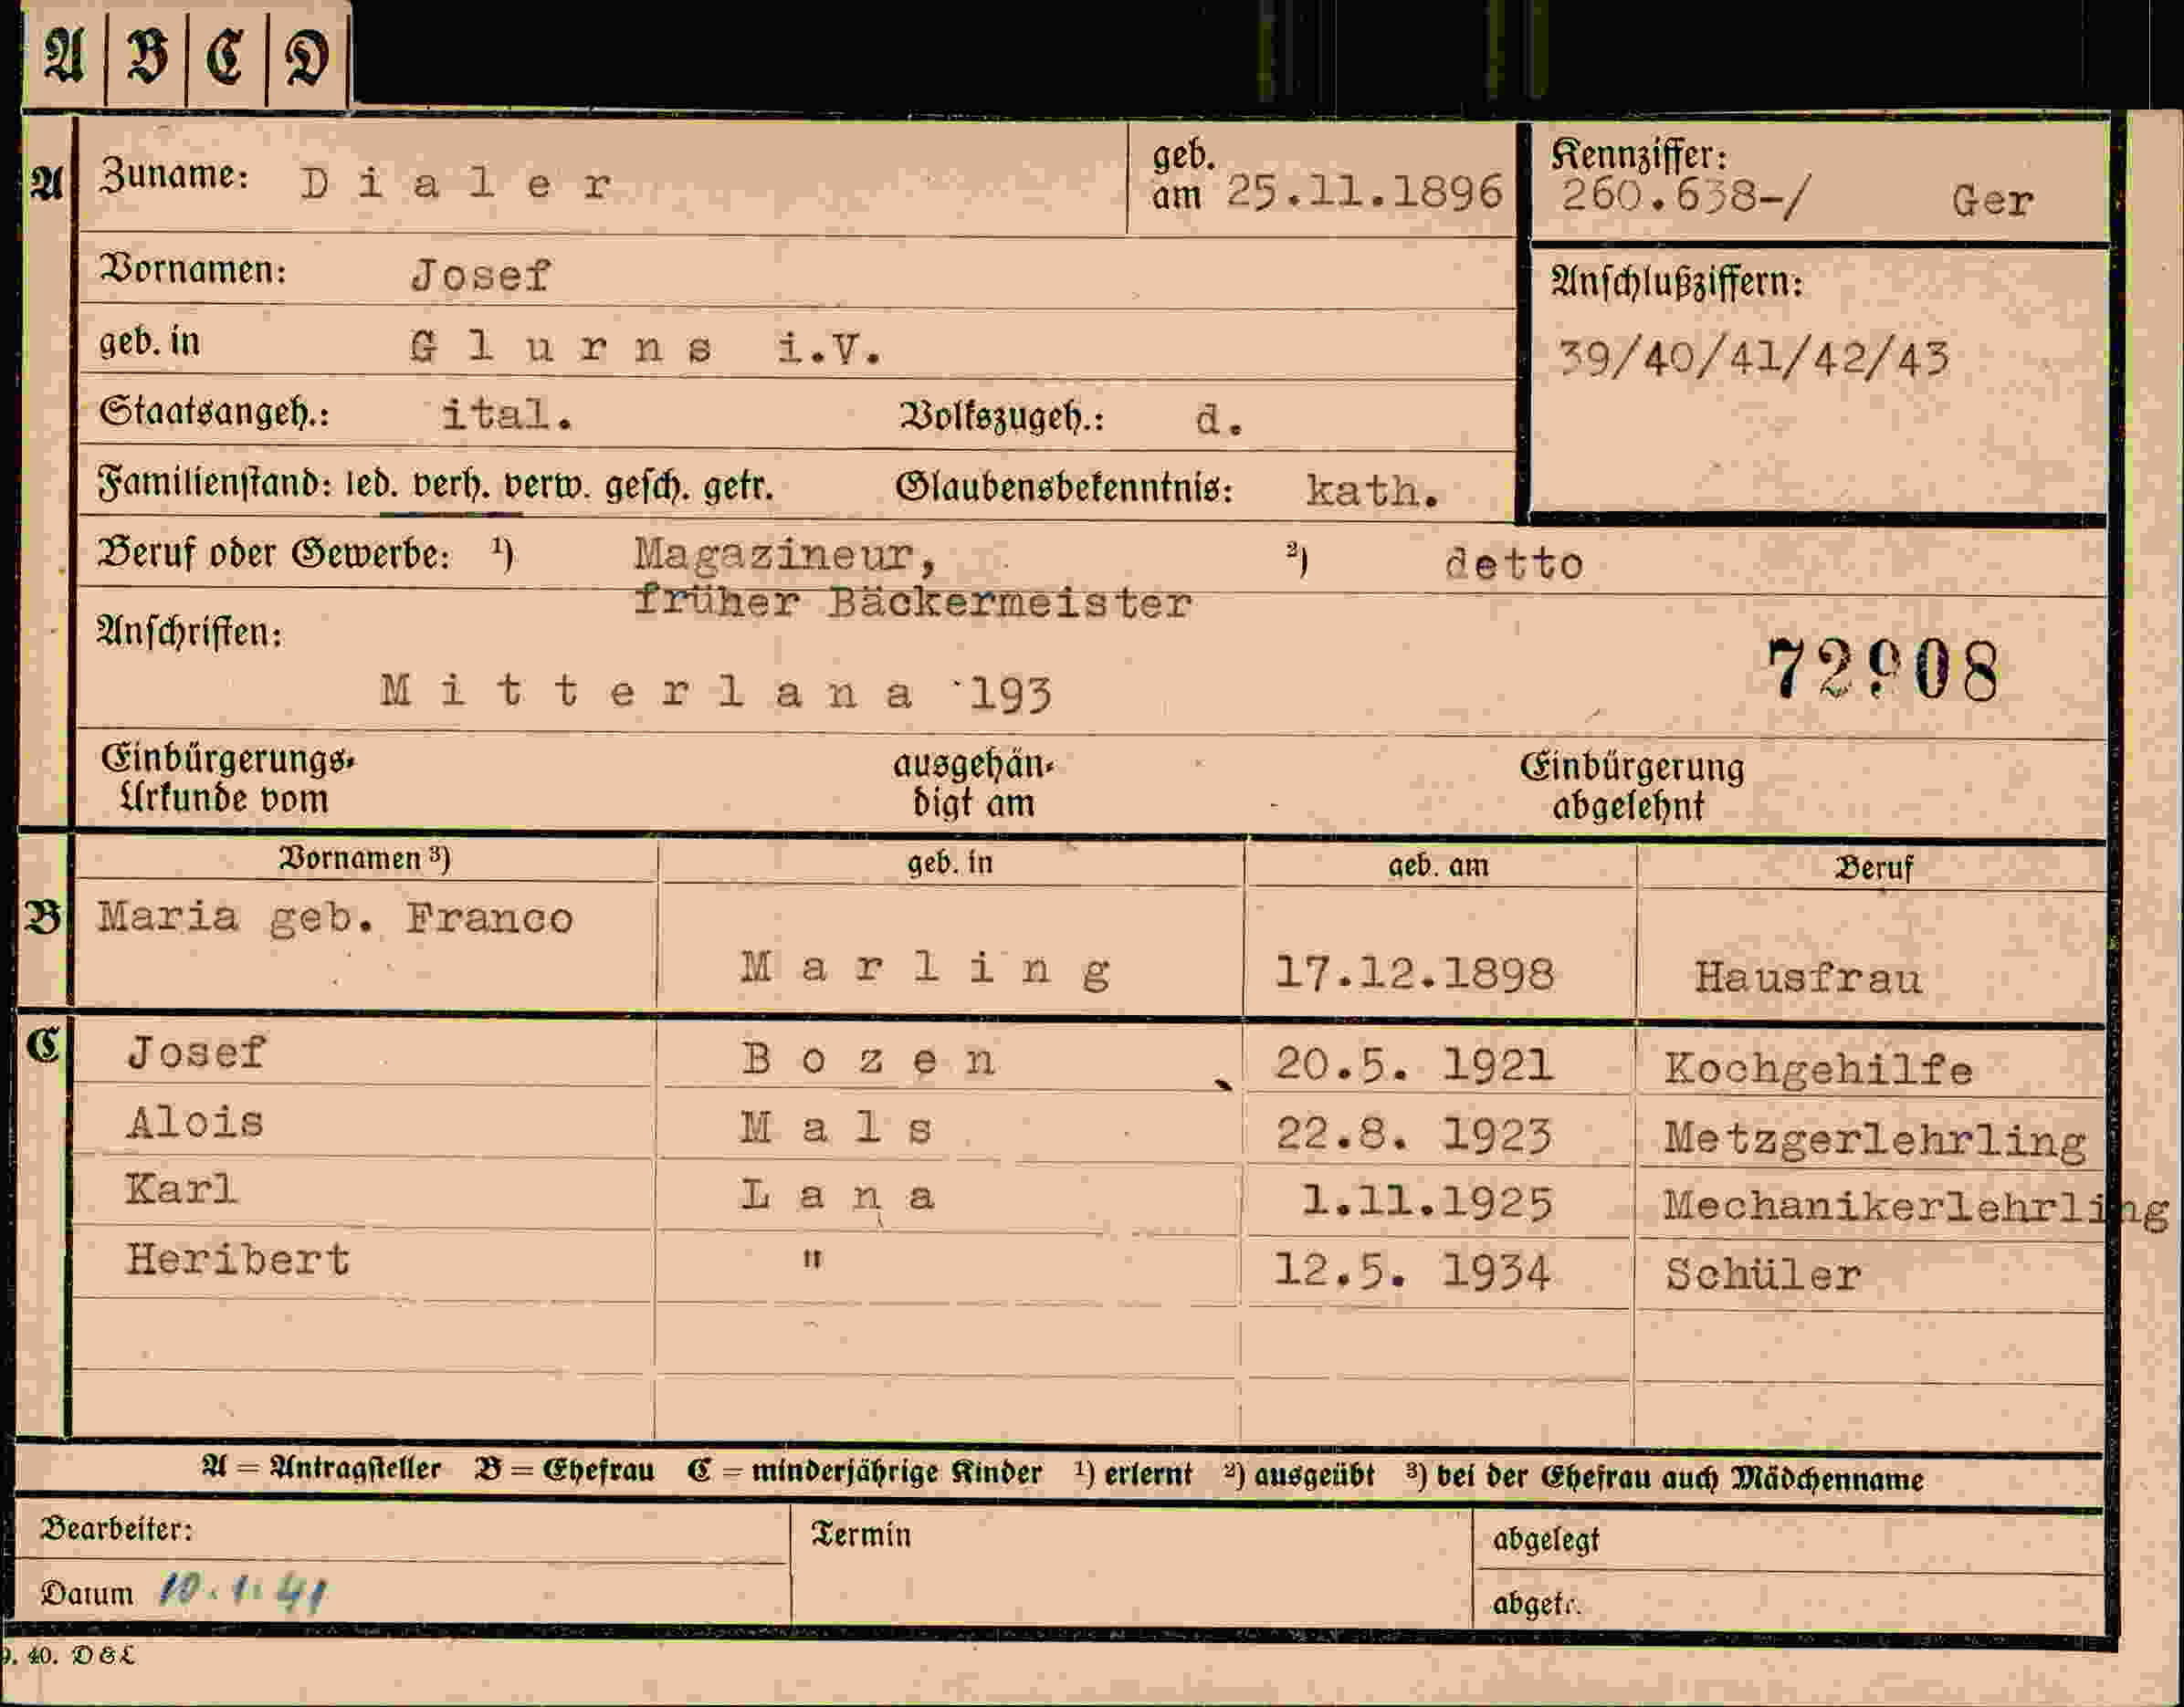 A B C D
A Zuname: Dialer geb. am 25.11.1896 Kennziffer: 260.638-/ Ger
Vornamen: Josef Anschlußziffern:
geb. in Glurns i.V. 39/40/41/42/43
Staatsangeh.: ital. Volkszugeh.: d.
Familienstand: led. verh. verw. gesch. getr. Glaubensbekenntnis: kath.
Beruf oder Gewerbe: ¹) Magazineur, ²) detto
früher Bäckermeister
Anschriften: 72908
Mitterlana 193
Einbürgerungs- ausgehän- Einbürgerung
Urkunde vom digt am abgelehnt
Vornamen ³) geb. in geb. am Beruf
B Maria geb. Franco
Marling 17.12.1898 Hausfrau
C Josef Bozen 20.5. 1921 Kochgehilfe
Alois Mals 22.8. 1923 Metzgerlehrling
Karl Lana 1.11.1925 Mechanikerlehrling
Heribert " 12.5. 1934 Schüler
A = Antragsteller B = Ehefrau C = minderjährige Kinder ¹) erlernt ²) ausgeübt ³) bei der Ehefrau auch Mädchenname
Bearbeiter: Termin abgelegt
Datum 10.1.41 abgetr.
9. 40. D & L